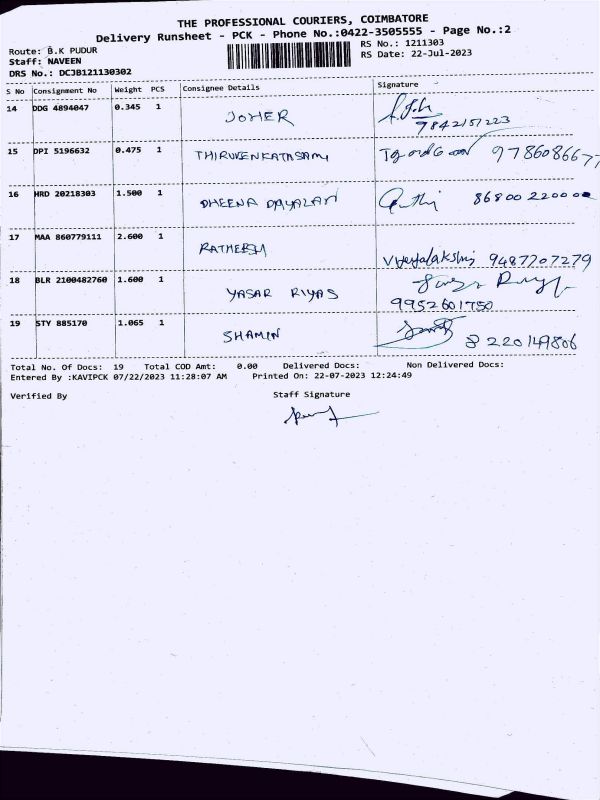 THE PROFESSIONAL COURIERS, COIMBATORE
Delivery Runsheet - PCK - Phone No.:0422-3505555 - Page No.:2
Route: B.K PUDUR
RS No.: 1211303
Staff: NAVEEN
RS Date: 22-Jul-2023
DRS No.: DCJB121130302
S No Consignment No Weight PCS Consignee Details Signature
14 DDG 4894047 0.345 1 JOHER
9842157223
15 DPI 5196632 0.475 1 THIRUVENKATASAMI 978608667
16 HRD 20218303 1.500 1 DHEENA DAYALAN
17 MAA 860779111 2.600 1 RATHEESH
Vijayalakshmi 9487707279
18 BLR 2100482760 1.600 1 YASAR RIYAS
9952601750
19 STY 885170 1.065 1 SHAMIN 8220149806
Total No. Of Docs: 19 Total COD Amt: 0.00 Delivered Docs: Non Delivered Docs:
Entered By :KAVIPCK 07/22/2023 11:28:07 AM Printed On: 22-07-2023 12:24:49
Verified By Staff Signature